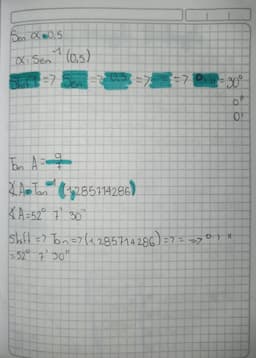 Sen α = 0,5
α = Sen⁻¹ (0,5)
Shift => Sen => 0,5 => = => ° ' " = 30°
0°
0'
Tan A = 9/7
∡A = Tan⁻¹ (1,285714286)
∡A = 52° 7' 30"
Shft => Tan => (1,285714286) => = => ° ' "
= 52° 7' 30"